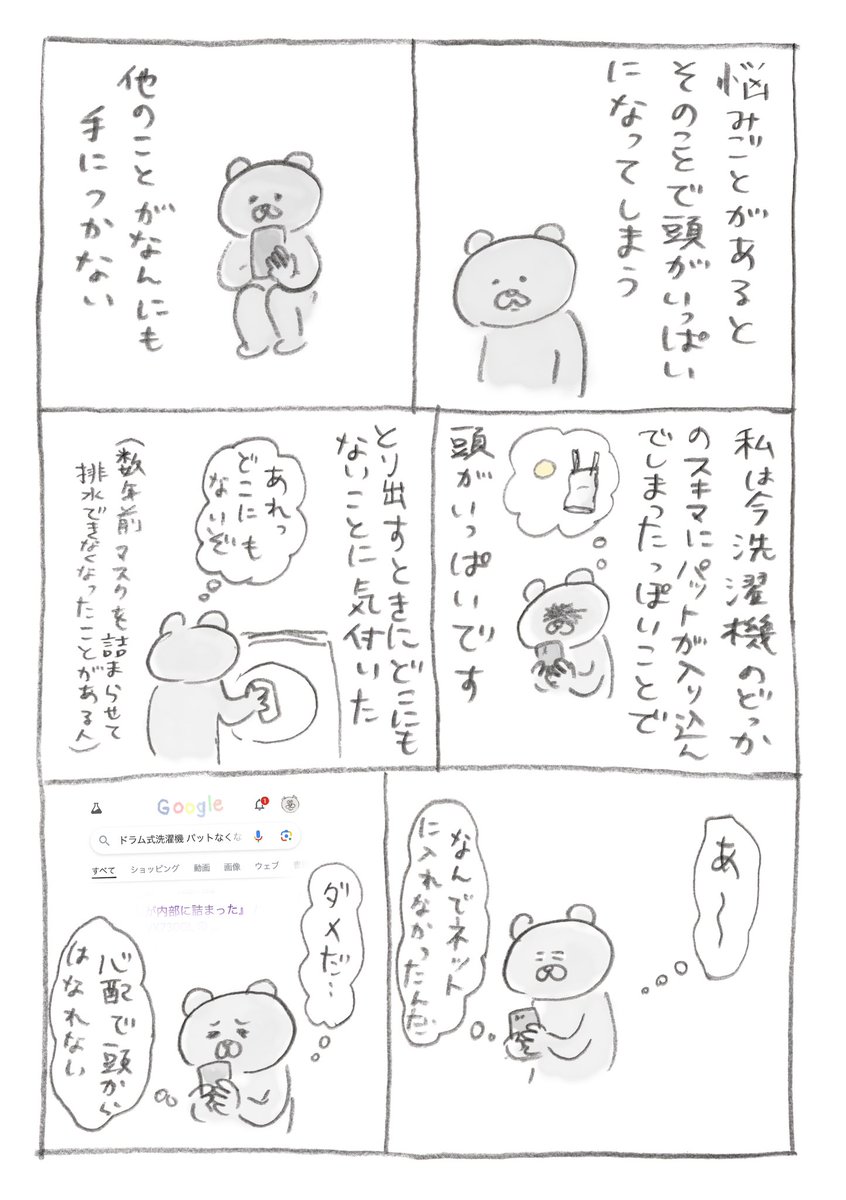 悩みごとがあると
そのことで頭がいっぱい
になってしまう
他のことがなんにも
手につかない
私は今洗濯機のどっか
のスキマにパットが入り込ん
でしまったっぽいことで
頭がいっぱいです
とり出すときにどこにも
ないことに気付いた
あれっ
どこにも
ないぞ
(数年前マスクを詰まらせて
排水できなくなったことがある人)
あ〜〜
なんでネット
に入れなかったんだ
Google
1
ドラム式洗濯機 パットなくな
すべて ショッピング 動画 画像 ウェブ
が内部に詰まった』
ダメだ…
心配で頭から
はなれない